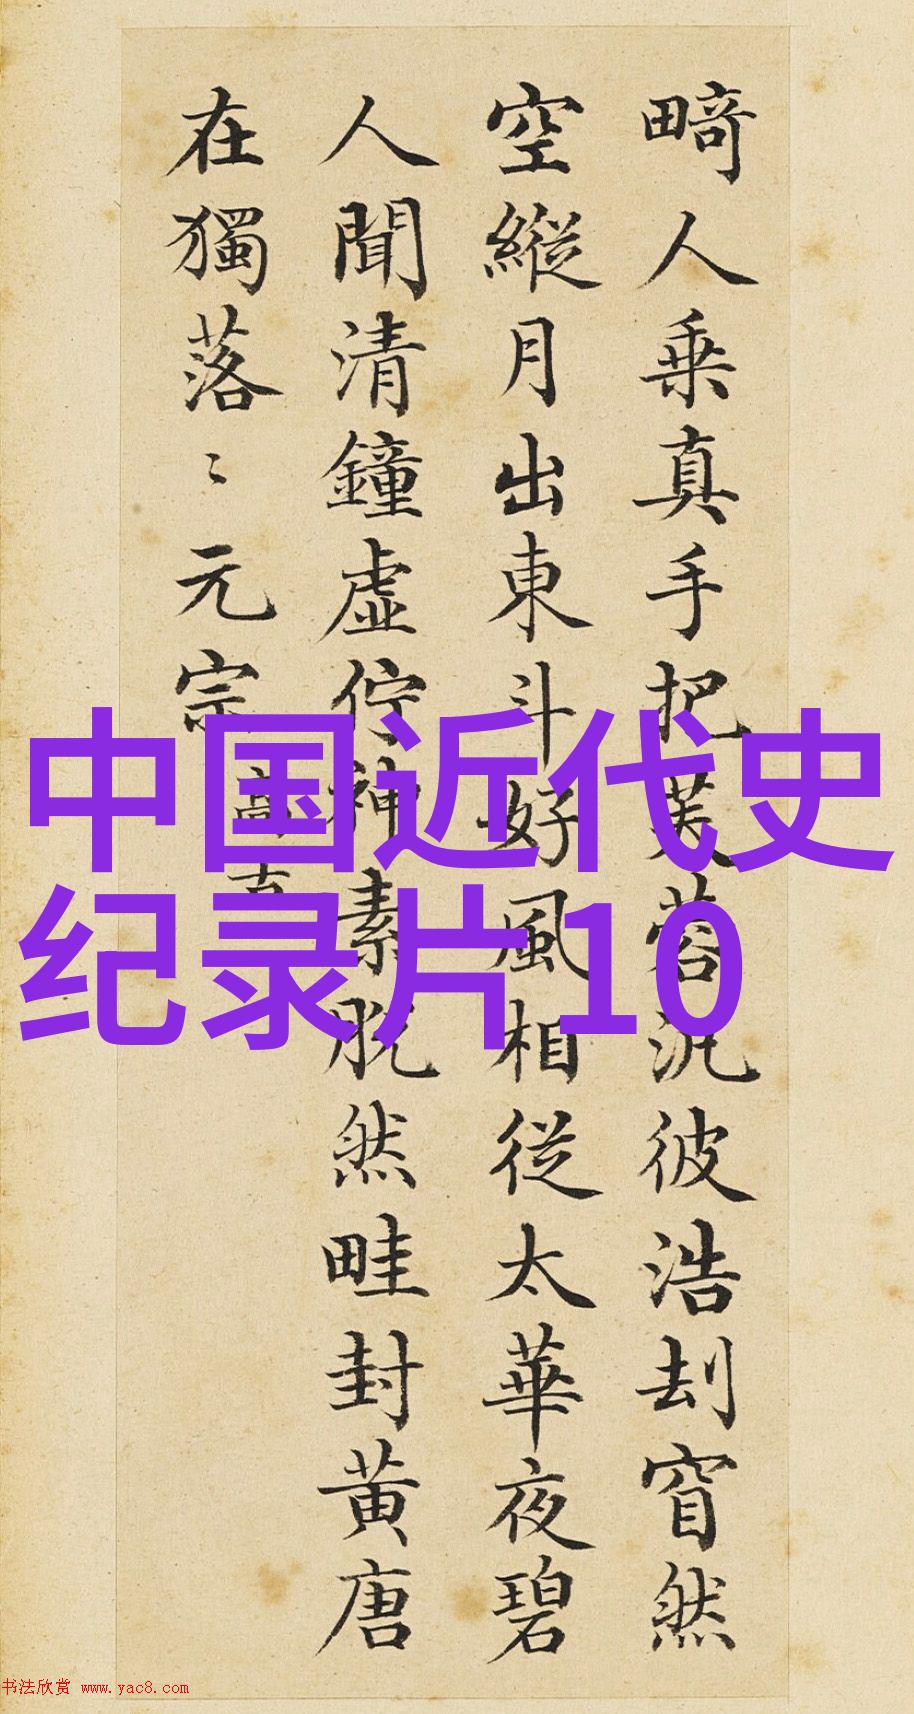 畸人乗真手把芙蓉汎彼浩刦窅然
空縦月出東斗好風相従太華夜碧
人聞清鐘虚佇神素脱然畦封黄唐
在獨落〻元宗 高古
中国近代史
纪录片10
书法欣赏 www.yac8.com